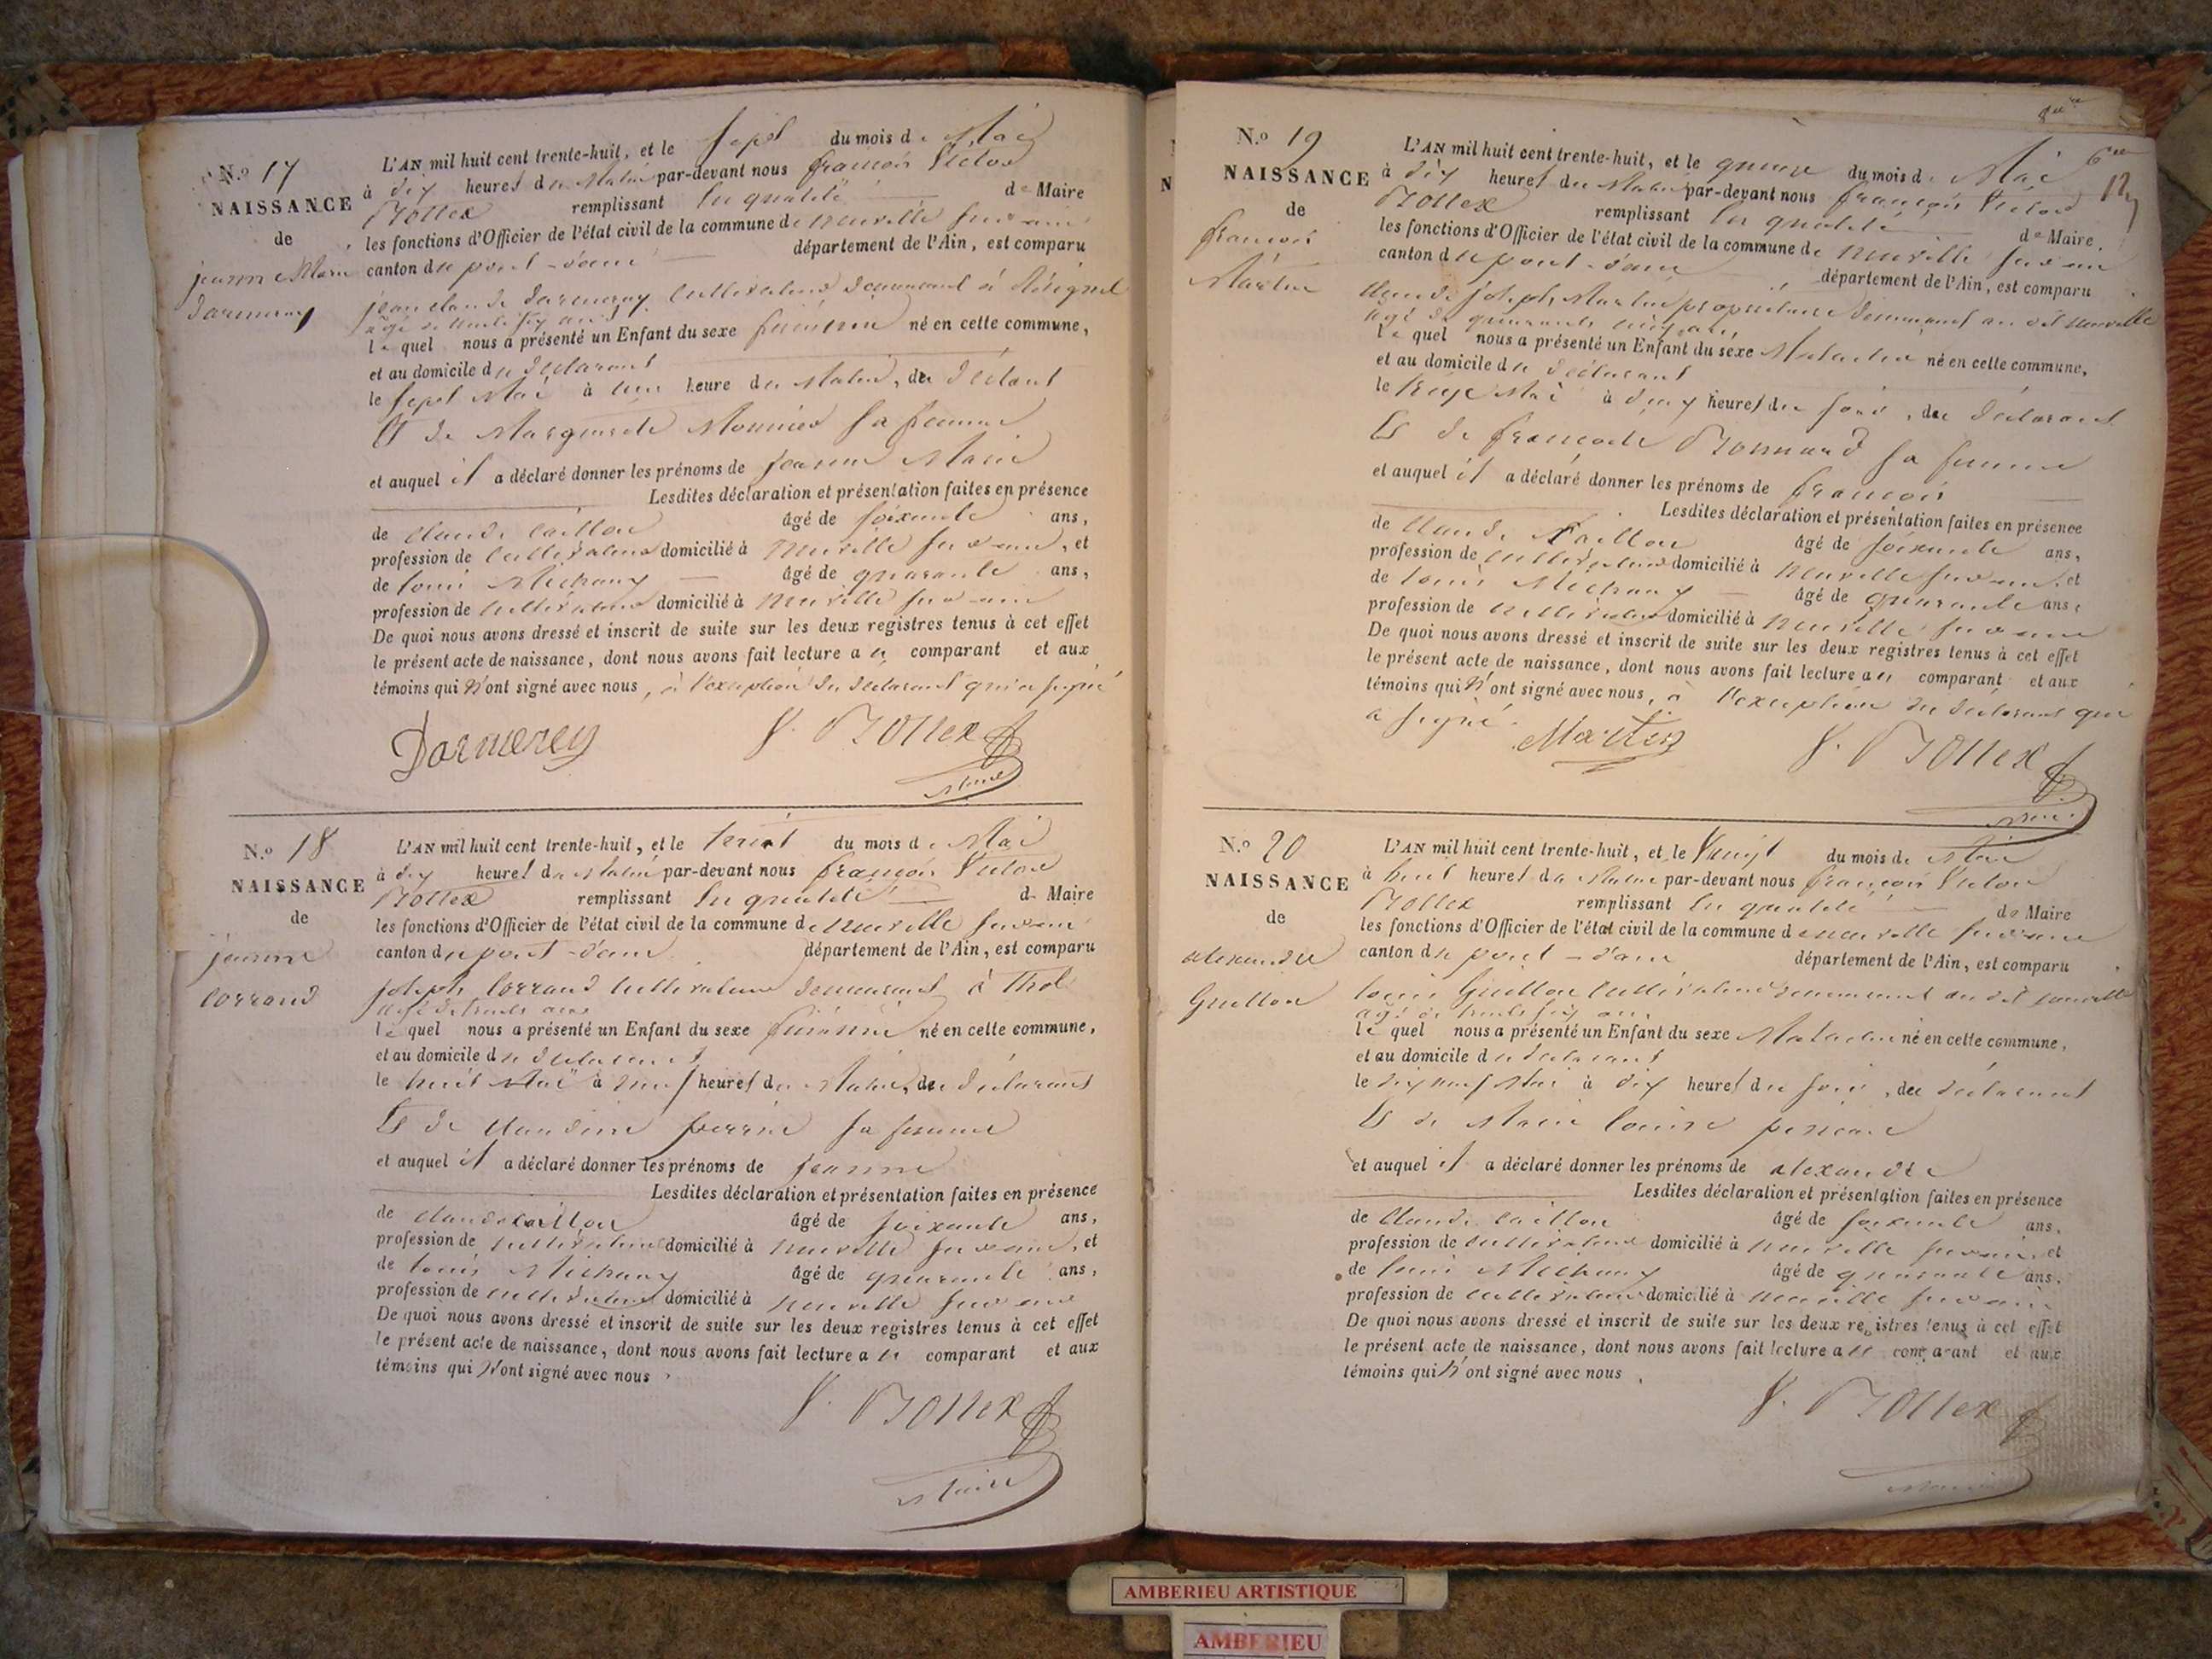 N.º 17
NAISSANCE
de
jeanne Marie
Darmerey
L'AN mil huit cent trente-huit, et le sept du mois de Mai
à dix heures du Matin par-devant nous françois Victor
Bollex remplissant en qualité de Maire
les fonctions d'Officier de l'état civil de la commune de neuville sur ain
canton du pont-d'ain département de l'Ain, est comparu
jean claude Darmerey cultivateur demeurant à
âgé de trente six ans
le quel nous a présenté un Enfant du sexe féminin né en cette commune,
et au domicile du déclarant
le sept Mai à une heure du Matin, du déclarant
Et de Marguerite Monnier sa femme
et auquel il a déclaré donner les prénoms de jeanne Marie
Lesdites déclaration et présentation faites en présence
de claude caillon âgé de soixante ans,
profession de cultivateur domicilié à neuville sur ain, et
de louis Michaux âgé de quarante ans,
profession de cultivateur domicilié à neuville sur ain
De quoi nous avons dressé et inscrit de suite sur les deux registres tenus à cet effet
le présent acte de naissance, dont nous avons fait lecture au comparant et aux
témoins qui n'ont signé avec nous, à l'exception du déclarant qui a signé
Darmerey
V. Bollex
Maire
N.º 18
NAISSANCE
de
jeanne
Corrand
L'AN mil huit cent trente-huit, et le huit du mois de Mai
à dix heures du Matin par-devant nous françois Victor
Bollex remplissant en qualité de Maire
les fonctions d'Officier de l'état civil de la commune de neuville sur ain
canton du pont-d'ain département de l'Ain, est comparu
joseph Corrand cultivateur demeurant à Thol
âgé de trente ans
le quel nous a présenté un Enfant du sexe féminin né en cette commune,
et au domicile du déclarant
le huit Mai à neuf heures du Matin, du déclarant
Et de claudine perrin sa femme
et auquel il a déclaré donner les prénoms de jeanne
Lesdites déclaration et présentation faites en présence
de claude caillon âgé de soixante ans,
profession de cultivateur domicilié à neuville sur ain, et
de louis Michaux âgé de quarante ans,
profession de cultivateur domicilié à neuville sur ain
De quoi nous avons dressé et inscrit de suite sur les deux registres tenus à cet effet
le présent acte de naissance, dont nous avons fait lecture au comparant et aux
témoins qui n'ont signé avec nous.
V. Bollex
Maire
12
N.º 19
NAISSANCE
de
françois
Martin
L'AN mil huit cent trente-huit, et le quinze du mois de Mai
à dix heures du Matin par-devant nous françois Victor
Bollex remplissant en qualité de Maire.
les fonctions d'Officier de l'état civil de la commune de neuville sur ain
canton du pont-d'ain département de l'Ain, est comparu
claude joseph Martin propriétaire demeurant au dit neuville
âgé de quarante cinq ans
le quel nous a présenté un Enfant du sexe Masculin né en cette commune,
et au domicile du déclarant
le treize Mai à deux heures du soir, du déclarant
Et de françoise Bonnard sa femme
et auquel il a déclaré donner les prénoms de françois
Lesdites déclaration et présentation faites en présence
de claude caillon âgé de soixante ans,
profession de cultivateur domicilié à neuville sur ain, et
de louis Michaux âgé de quarante ans,
profession de cultivateur domicilié à neuville sur ain
De quoi nous avons dressé et inscrit de suite sur les deux registres tenus à cet effet
le présent acte de naissance, dont nous avons fait lecture au comparant et aux
témoins qui n'ont signé avec nous, à l'exception du déclarant qui
a signé.
Martin
V. Bollex
Maire
N.º 20
NAISSANCE
de
alexandre
Guillon
L'AN mil huit cent trente-huit, et le Vingt du mois de Mai
à huit heures du Matin par-devant nous françois Victor
Bollex remplissant en qualité de Maire
les fonctions d'Officier de l'état civil de la commune de neuville sur ain
canton du pont-d'ain département de l'Ain, est comparu
louis Guillon cultivateur demeurant au dit neuville
âgé de trente six ans
le quel nous a présenté un Enfant du sexe Masculin né en cette commune,
et au domicile du déclarant
le dix neuf Mai à dix heures du soir, du déclarant
Et de Marie louise
et auquel il a déclaré donner les prénoms de alexandre
Lesdites déclaration et présentation faites en présence
de claude caillon âgé de soixante ans.
profession de cultivateur domicilié à neuville sur ain, et
de louis Michaux âgé de quarante ans.
profession de cultivateur domicilié à neuville sur ain
De quoi nous avons dressé et inscrit de suite sur les deux registres tenus à cet effet
le présent acte de naissance, dont nous avons fait lecture au comparant et aux
témoins qui n'ont signé avec nous.
V. Bollex
Maire
AMBERIEU ARTISTIQUE
AMBERIEU